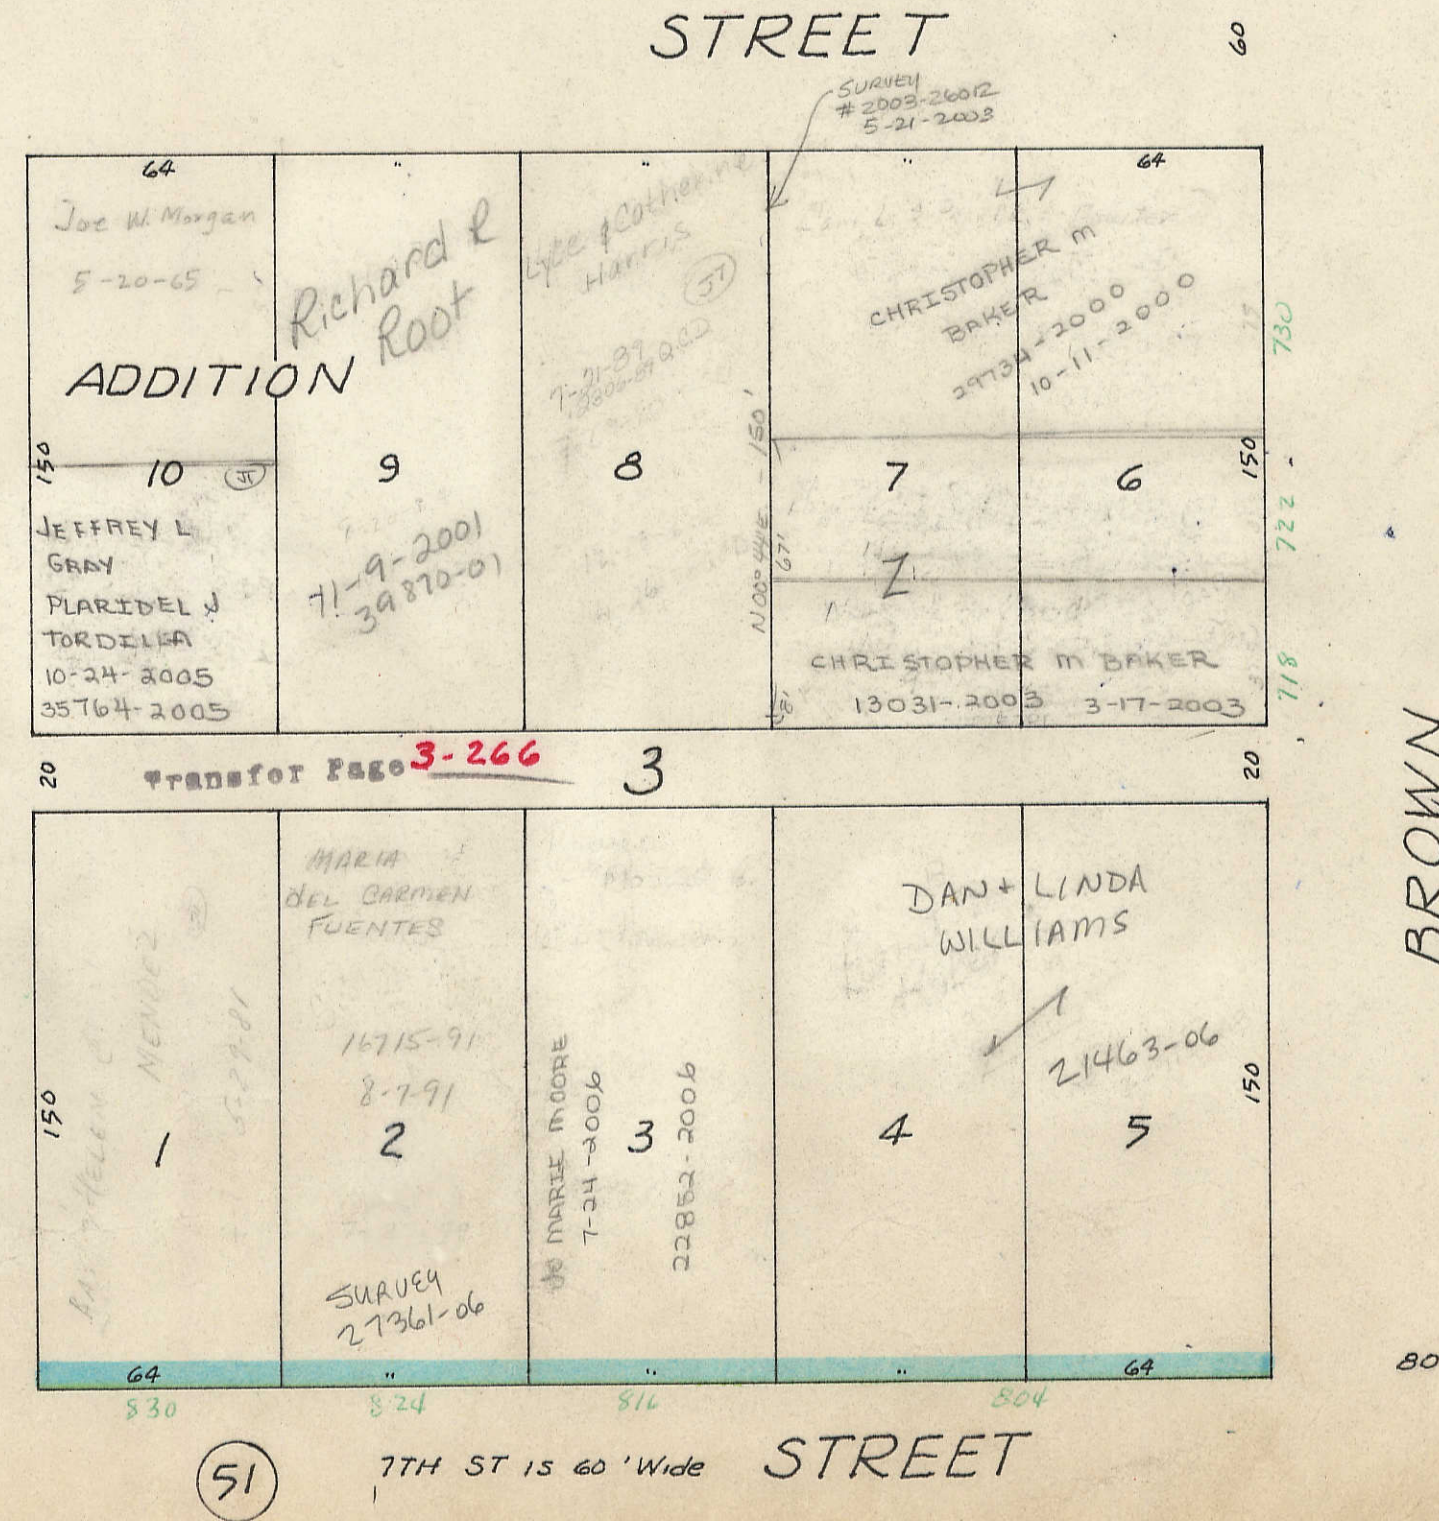 STREET
60
SURVEY
# 2003-26012
5-21-2003
64
"
"
"
64
Joe W. Morgan
5-20-65
Richard R
Root
Harris
CHRISTOPHER M
BAKER
29734-2000
10-11-2000
730
ADDITION
7-21-89
150
10
9
8
7
6
150
N00°44'E - 150'
67'
722
JEFFREY L
GRAY
PLARIDEL J
TORDILLA
10-24-2005
35764-2005
11-9-2001
39870-01
Z
CHRISTOPHER M BAKER
13031-2003 3-17-2003
718
20
Transfer Page 3-266
3
20
BROWN
MARIA
DEL CARMEN
FUENTES
16715-91
8-7-91
MENDEZ
5-29-81
DAN + LINDA
WILLIAMS
21463-06
150
1
2
JO MARIE MOORE
7-24-2006
3
22852-2006
4
5
150
SURVEY
27361-06
64
"
"
"
64
80
830
824
816
804
51
7TH ST IS 60' Wide
STREET